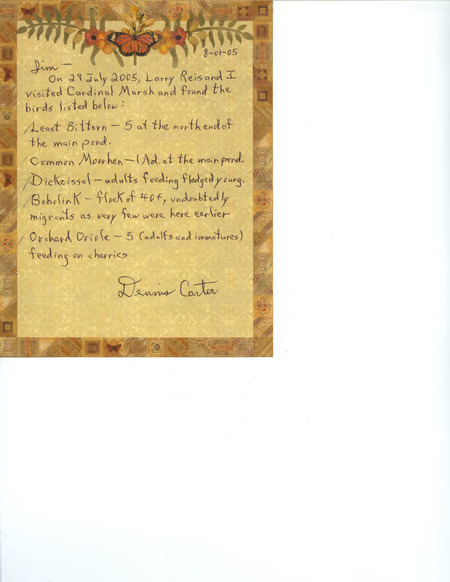 8-01-05
Jim —
On 29 July 2005, Larry Reis and I
visited Cardinal Marsh and found the
birds listed below:
Least Bittern — 5 at the north end of
the main pond.
Common Moorhen — 1 Ad. at the main pond.
Dickcissel — adults feeding fledged young.
Bobolink — flock of 40+, undoubtedly
migrants as very few were here earlier
Orchard Oriole — 5 (adults and immatures)
feeding on cherries
Dennis Carter